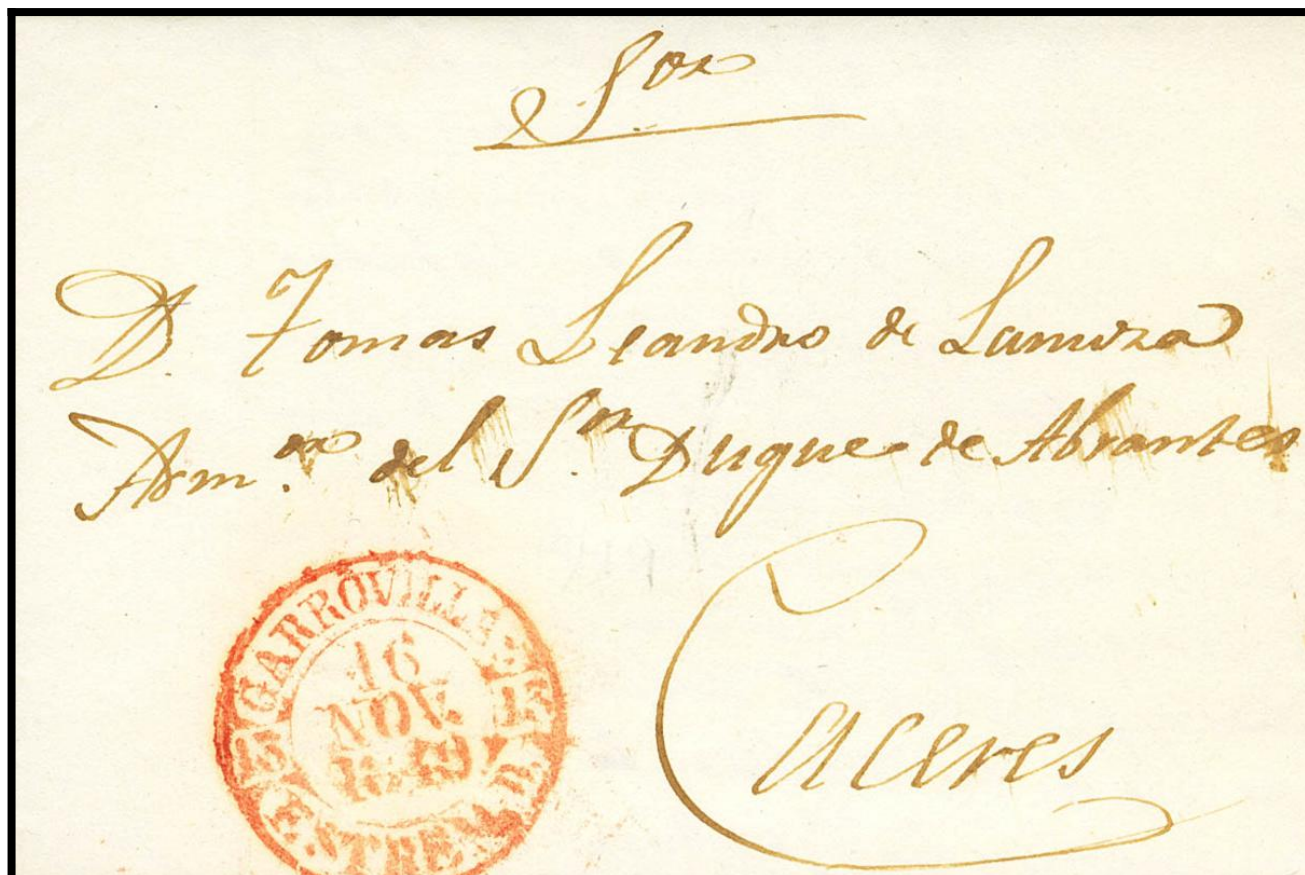 Sor
D. Tomas Leandro de Lamiza
Adm.or del S.or Duque de Abrantes
Caceres
GARROVILLAS
16
NOV.
1849
ESTREMAD